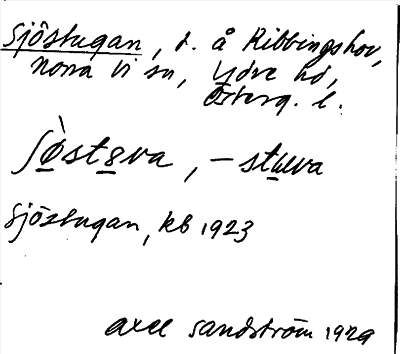 Sjöstugan, t. å Ribbingshov,
Norra Vi sn, Ydre hd,
Österg. l.
ʃø̀stɞva, –stuva
Sjöstugan, kb 1923
Axel Sandström 1929